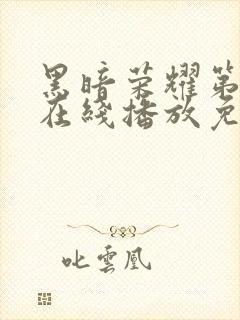 黑暗荣耀第
在綫播放免
叱雲凰